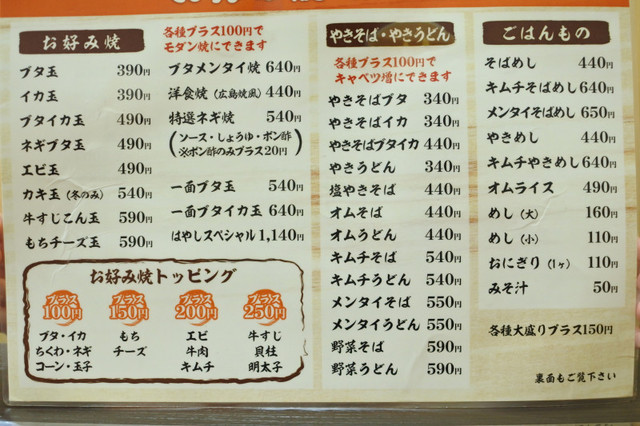 お好み焼
ブタ玉 390円
イカ玉 390円
ブタイカ玉 490円
ネギブタ玉 490円
エビ玉 490円
カキ玉(冬のみ) 540円
牛すじこん玉 590円
もちチーズ玉 590円
各種プラス100円で
モダン焼にできます
ブタメンタイ焼 640円
洋食焼(広島焼風) 440円
特選ネギ焼 540円
(ソース・しょうゆ・ポン酢
※ポン酢のみプラス20円)
一面ブタ玉 540円
一面ブタイカ玉 640円
はやしスペシャル 1,140円
お好み焼トッピング
プラス
100円
ブタ・イカ
ちくわ・ネギ
コーン・玉子
プラス
150円
もち
チーズ
プラス
200円
エビ
牛肉
キムチ
プラス
250円
牛すじ
貝柱
明太子
やきそば・やきうどん
各種プラス100円で
キャベツ増にできます
やきそばブタ 340円
やきそばイカ 340円
やきそばブタイカ 440円
やきうどん 340円
塩やきそば 440円
オムそば 440円
オムうどん 440円
キムチそば 540円
キムチうどん 540円
メンタイそば 550円
メンタイうどん 550円
野菜そば 590円
野菜うどん 590円
ごはんもの
そばめし 440円
キムチそばめし 640円
メンタイそばめし 650円
やきめし 440円
キムチやきめし 640円
オムライス 490円
めし(大) 160円
めし(小) 110円
おにぎり(1ヶ) 110円
みそ汁 50円
各種大盛りプラス150円
裏面もご覧下さい